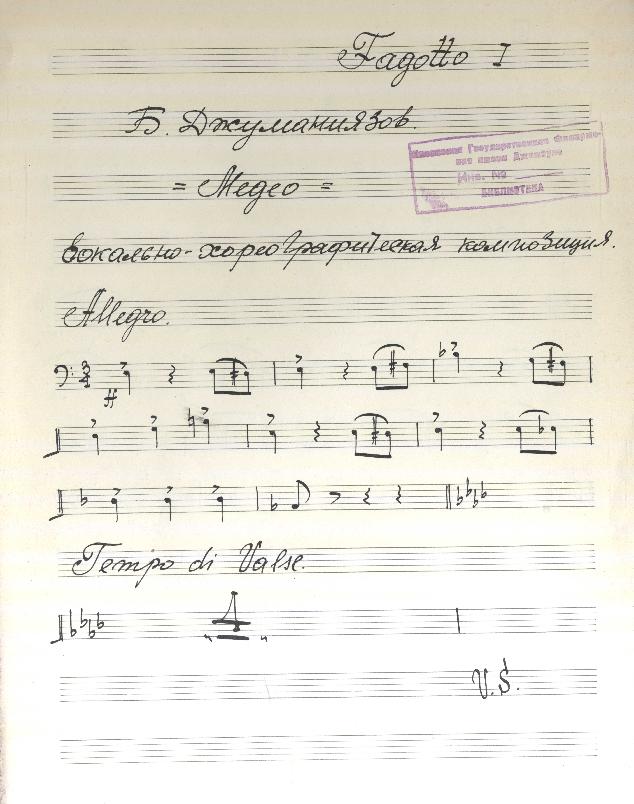 Fagotto I
Б. Джуманиязов.
Государственная
имени Джамбула
Инв. №
БИБЛИОТЕКА
= Медео =
вокально-хореографическая композиция.
Allegro.
3
4
ff
Tempo di Valse.
4
V.S.